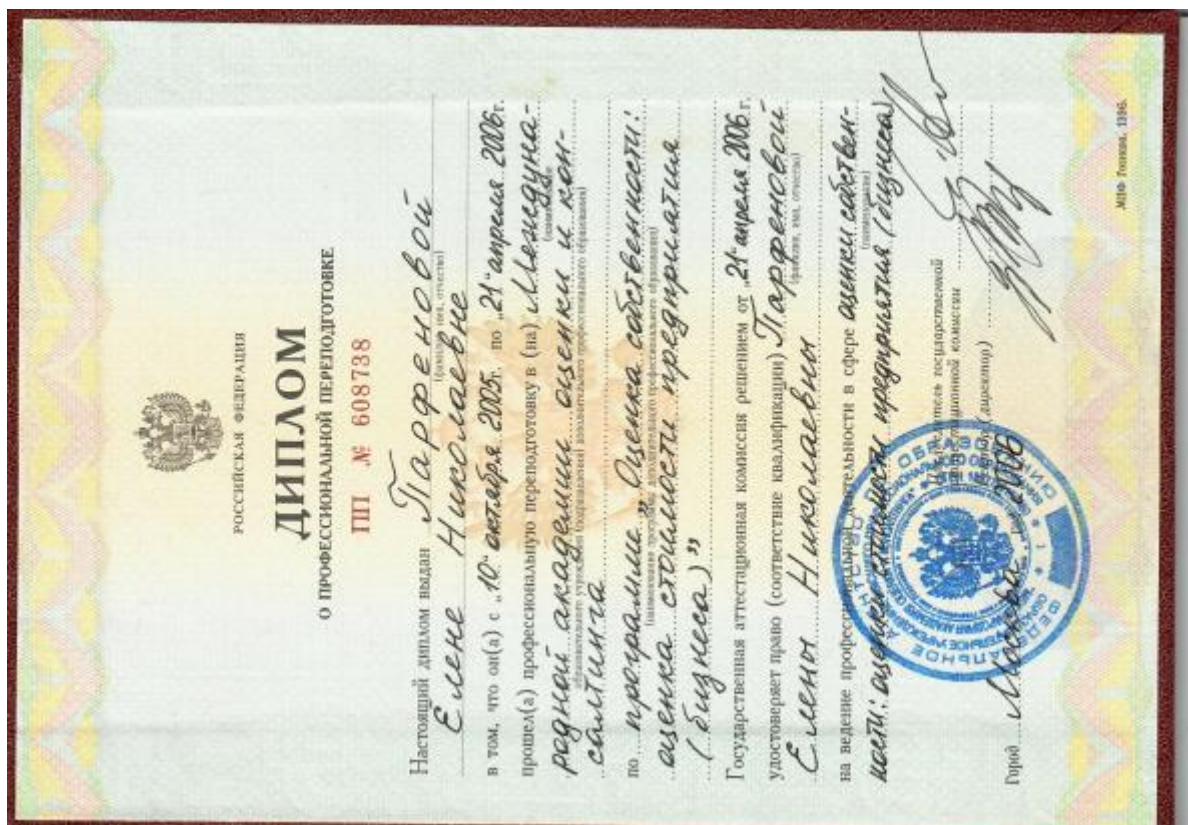 РОССИЙСКАЯ ФЕДЕРАЦИЯ
ДИПЛОМ
О ПРОФЕССИОНАЛЬНОЙ ПЕРЕПОДГОТОВКЕ
ПП № 608738
Настоящий диплом выдан Парфеновой
(фамилия, имя, отчество)
Елене Николаевне
в том, что он(а) с „10“ октября 2005г. по „21“ апреля 2006г.
прошел(а) профессиональную переподготовку в (на) Междуна-
(наименование
родной академии оценки и кон-
образовательного учреждения (подразделения) дополнительного профессионального образования)
салтинга
по программе „Оценка собственности:
(наименование программы дополнительного профессионального образования)
оценка стоимости предприятия
(бизнеса)”
Государственная аттестационная комиссия решением от „21“ апреля 2006г.
удостоверяет право (соответствие квалификации) Парфеновой
(фамилия, имя, отчество)
Елены Николаевны
на ведение профессиональной деятельности в сфере оценки собствен-
(наименование)
ности: оценки стоимости предприятия (бизнеса)
Председатель государственной
аттестационной комиссии
(директор)
Город Москва 2006
МПФ Гознака. 1996.